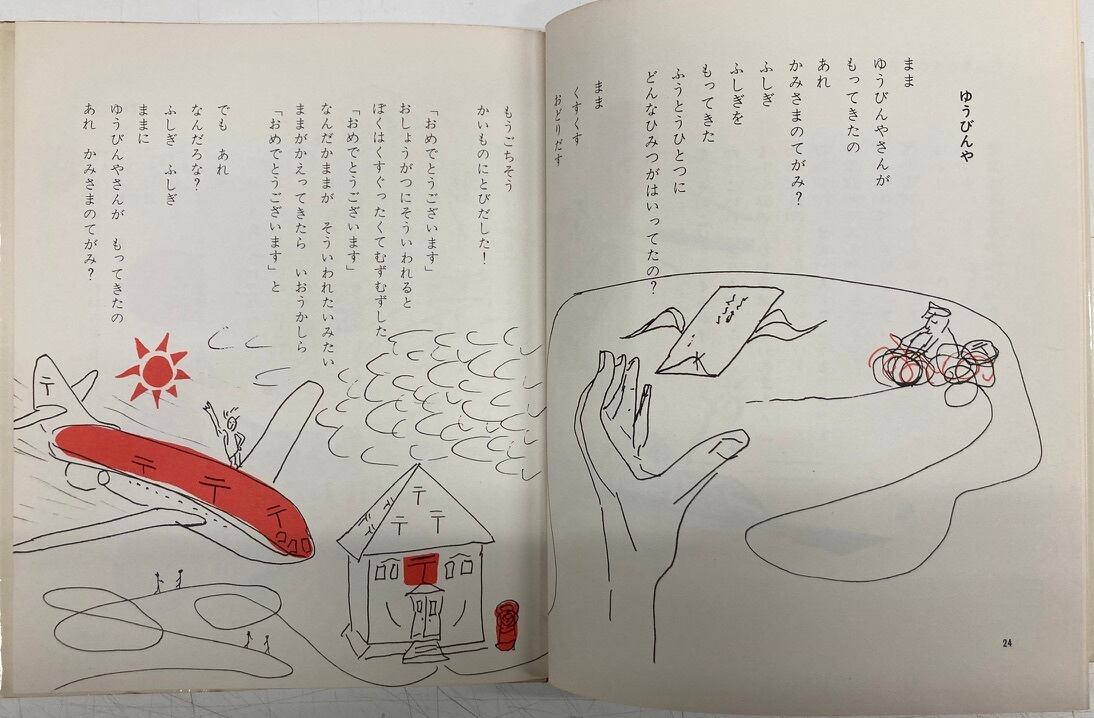 ゆうびんや
まま
ゆうびんやさんが
もってきたの
あれ
かみさまのてがみ?
ふしぎ
ふしぎを
もってきた
ふうとうひとつに
どんなひみつがはいってたの?
まま
くすくす
おどりだす
24
もうごちそう
かいものにとびだした!
「おめでとうございます」
おしょうがつにそういわれると
ぼくはくすぐったくてむずむずした
「おめでとうございます」
なんだかままが そういわれたいみたい
ままがかえってきたら いおうかしら
「おめでとうございます」と
でも あれ
なんだろな?
ふしぎ ふしぎ
ままに
ゆうびんやさんが もってきたの
あれ かみさまのてがみ?
〒
〒
〒
〒
〒
〒
〒
〒